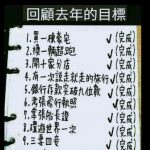 回顧去年的目標
1.買一棟豪宅 ✓(完成)
2.換一輛超跑 ✓(完成)
3.開十家分店 ✓(完成)
4.有一次說走就走的旅行 ✓(完成)
5.銀行存款突破九位數 ✓(完成)
6.考張飛行執照 ✓(完成)
7.拿張船長證 ✓(完成)
8.環遊世界一次 ✓(完成)
9.三書四章 ✓(完成)